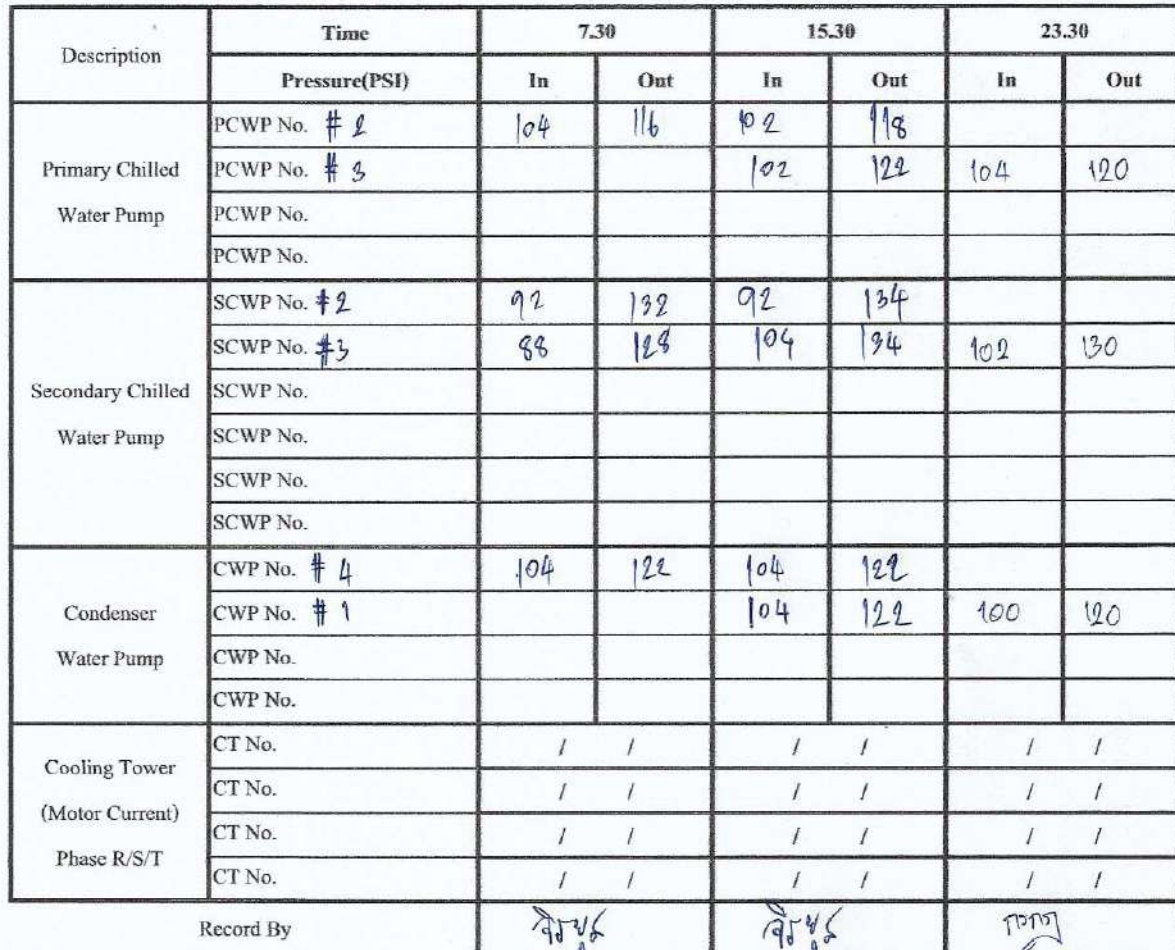 Description Time 7.30 15.30 23.30
Pressure(PSI) In Out In Out In Out
Primary Chilled Water Pump
PCWP No. # 2 104 116 102 118
PCWP No. # 3 102 122 104 120
PCWP No.
PCWP No.
Secondary Chilled Water Pump
SCWP No. #2 92 132 92 134
SCWP No. #3 88 128 104 134 102 130
SCWP No.
SCWP No.
SCWP No.
SCWP No.
Condenser Water Pump
CWP No. # 4 104 122 104 122
CWP No. # 1 104 122 100 120
CWP No.
CWP No.
Cooling Tower (Motor Current) Phase R/S/T
CT No. / / / / / /
CT No. / / / / / /
CT No. / / / / / /
CT No. / / / / / /
Record By